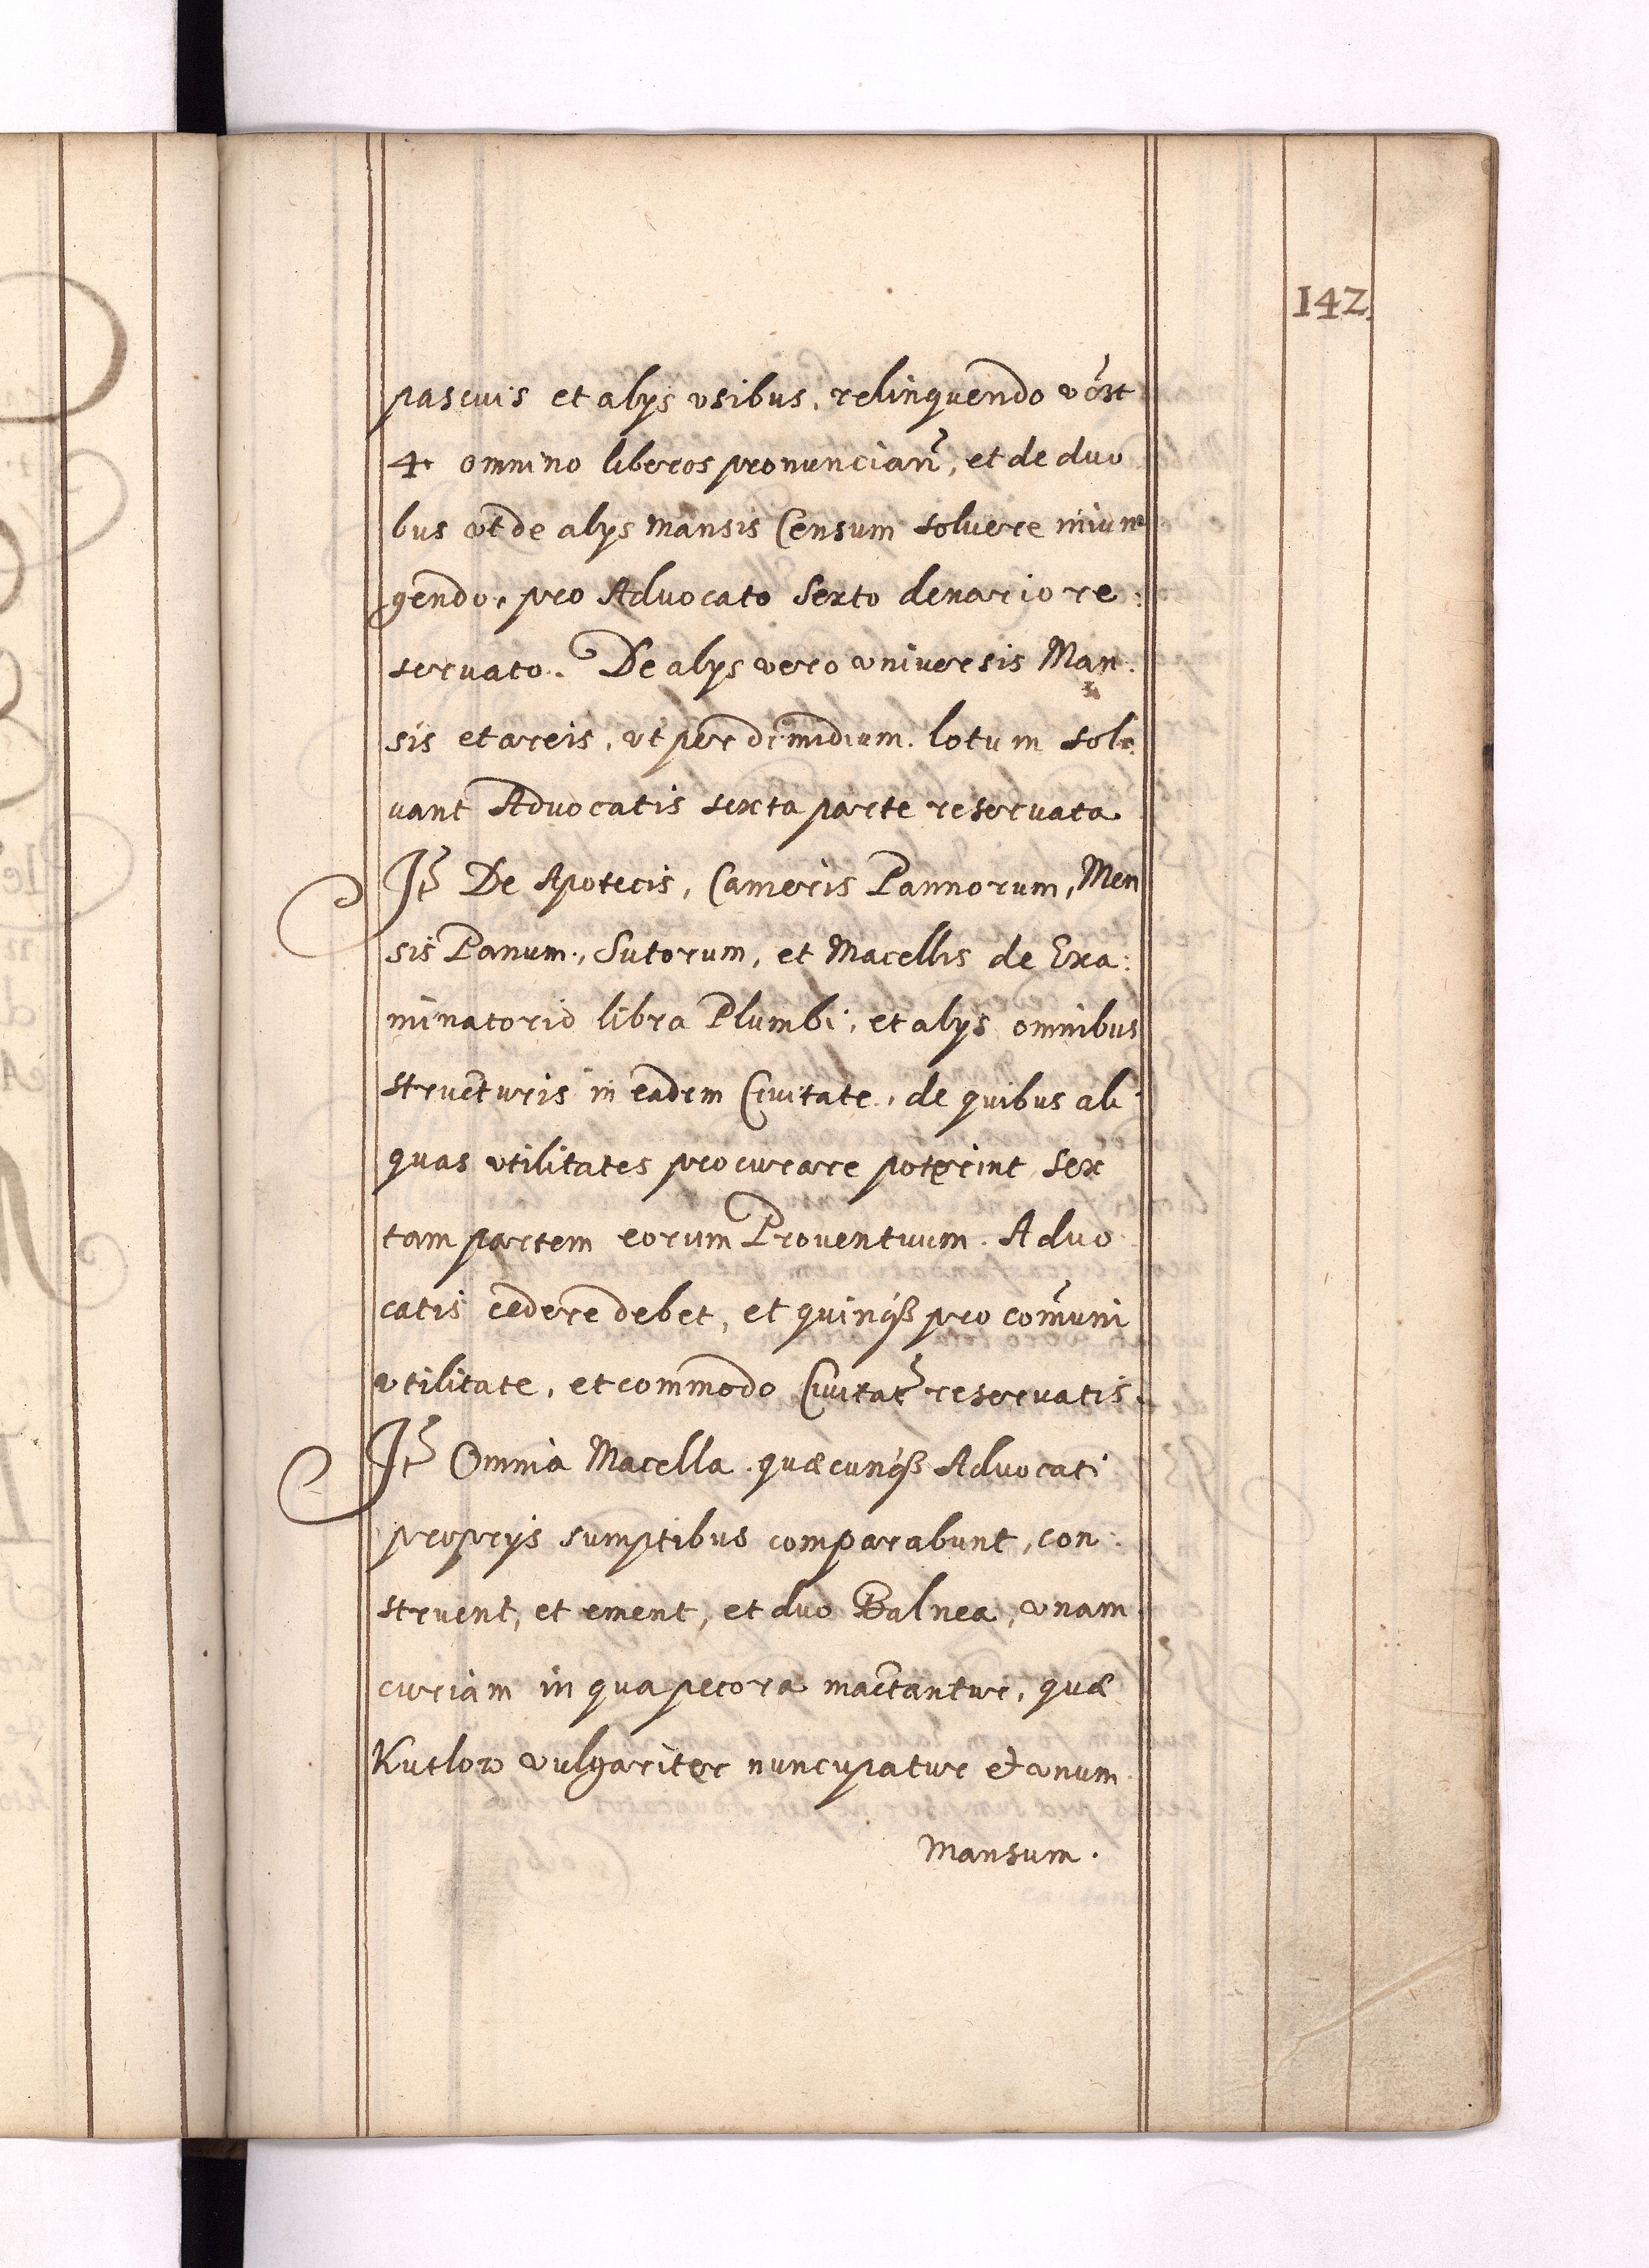 142.
pascuis et alys vsibus, relinquendo
4. omnino liberos pronunciañ, et de duo
bus vt de alys mansis Censum soluere iniun
gendo, pro Advocato Sexto denario re:
seruato. De alys vero vniversis Man:
sis et areis, vt per dimidium lotum sol:
uant Advocatis sexta parte reseruata
It De Apotecis, Cameris Pannorum, Men
sis Panum, Sutorum, et Macellis de Exa:
minatorio libra Plumbi, et alys omnibus
structuris in eadem Ciuitate, de quibus ali
quas vtilitates procurare poterint sex
tam partem eorum Prouentuum Advo
catis cedere debet, et quinqß pro com̃uni
vtilitate, et commodo Ciuitat reseruatis.
It Omnia Macella quæcunqß Advocati
proprys sumptibus comparabunt, con:
struent, et ement, et duo Balnea, vnam
curiam in qua pecora mactantur, quæ
Kutlow vulgariter nuncupatur et vnum
Mansum.